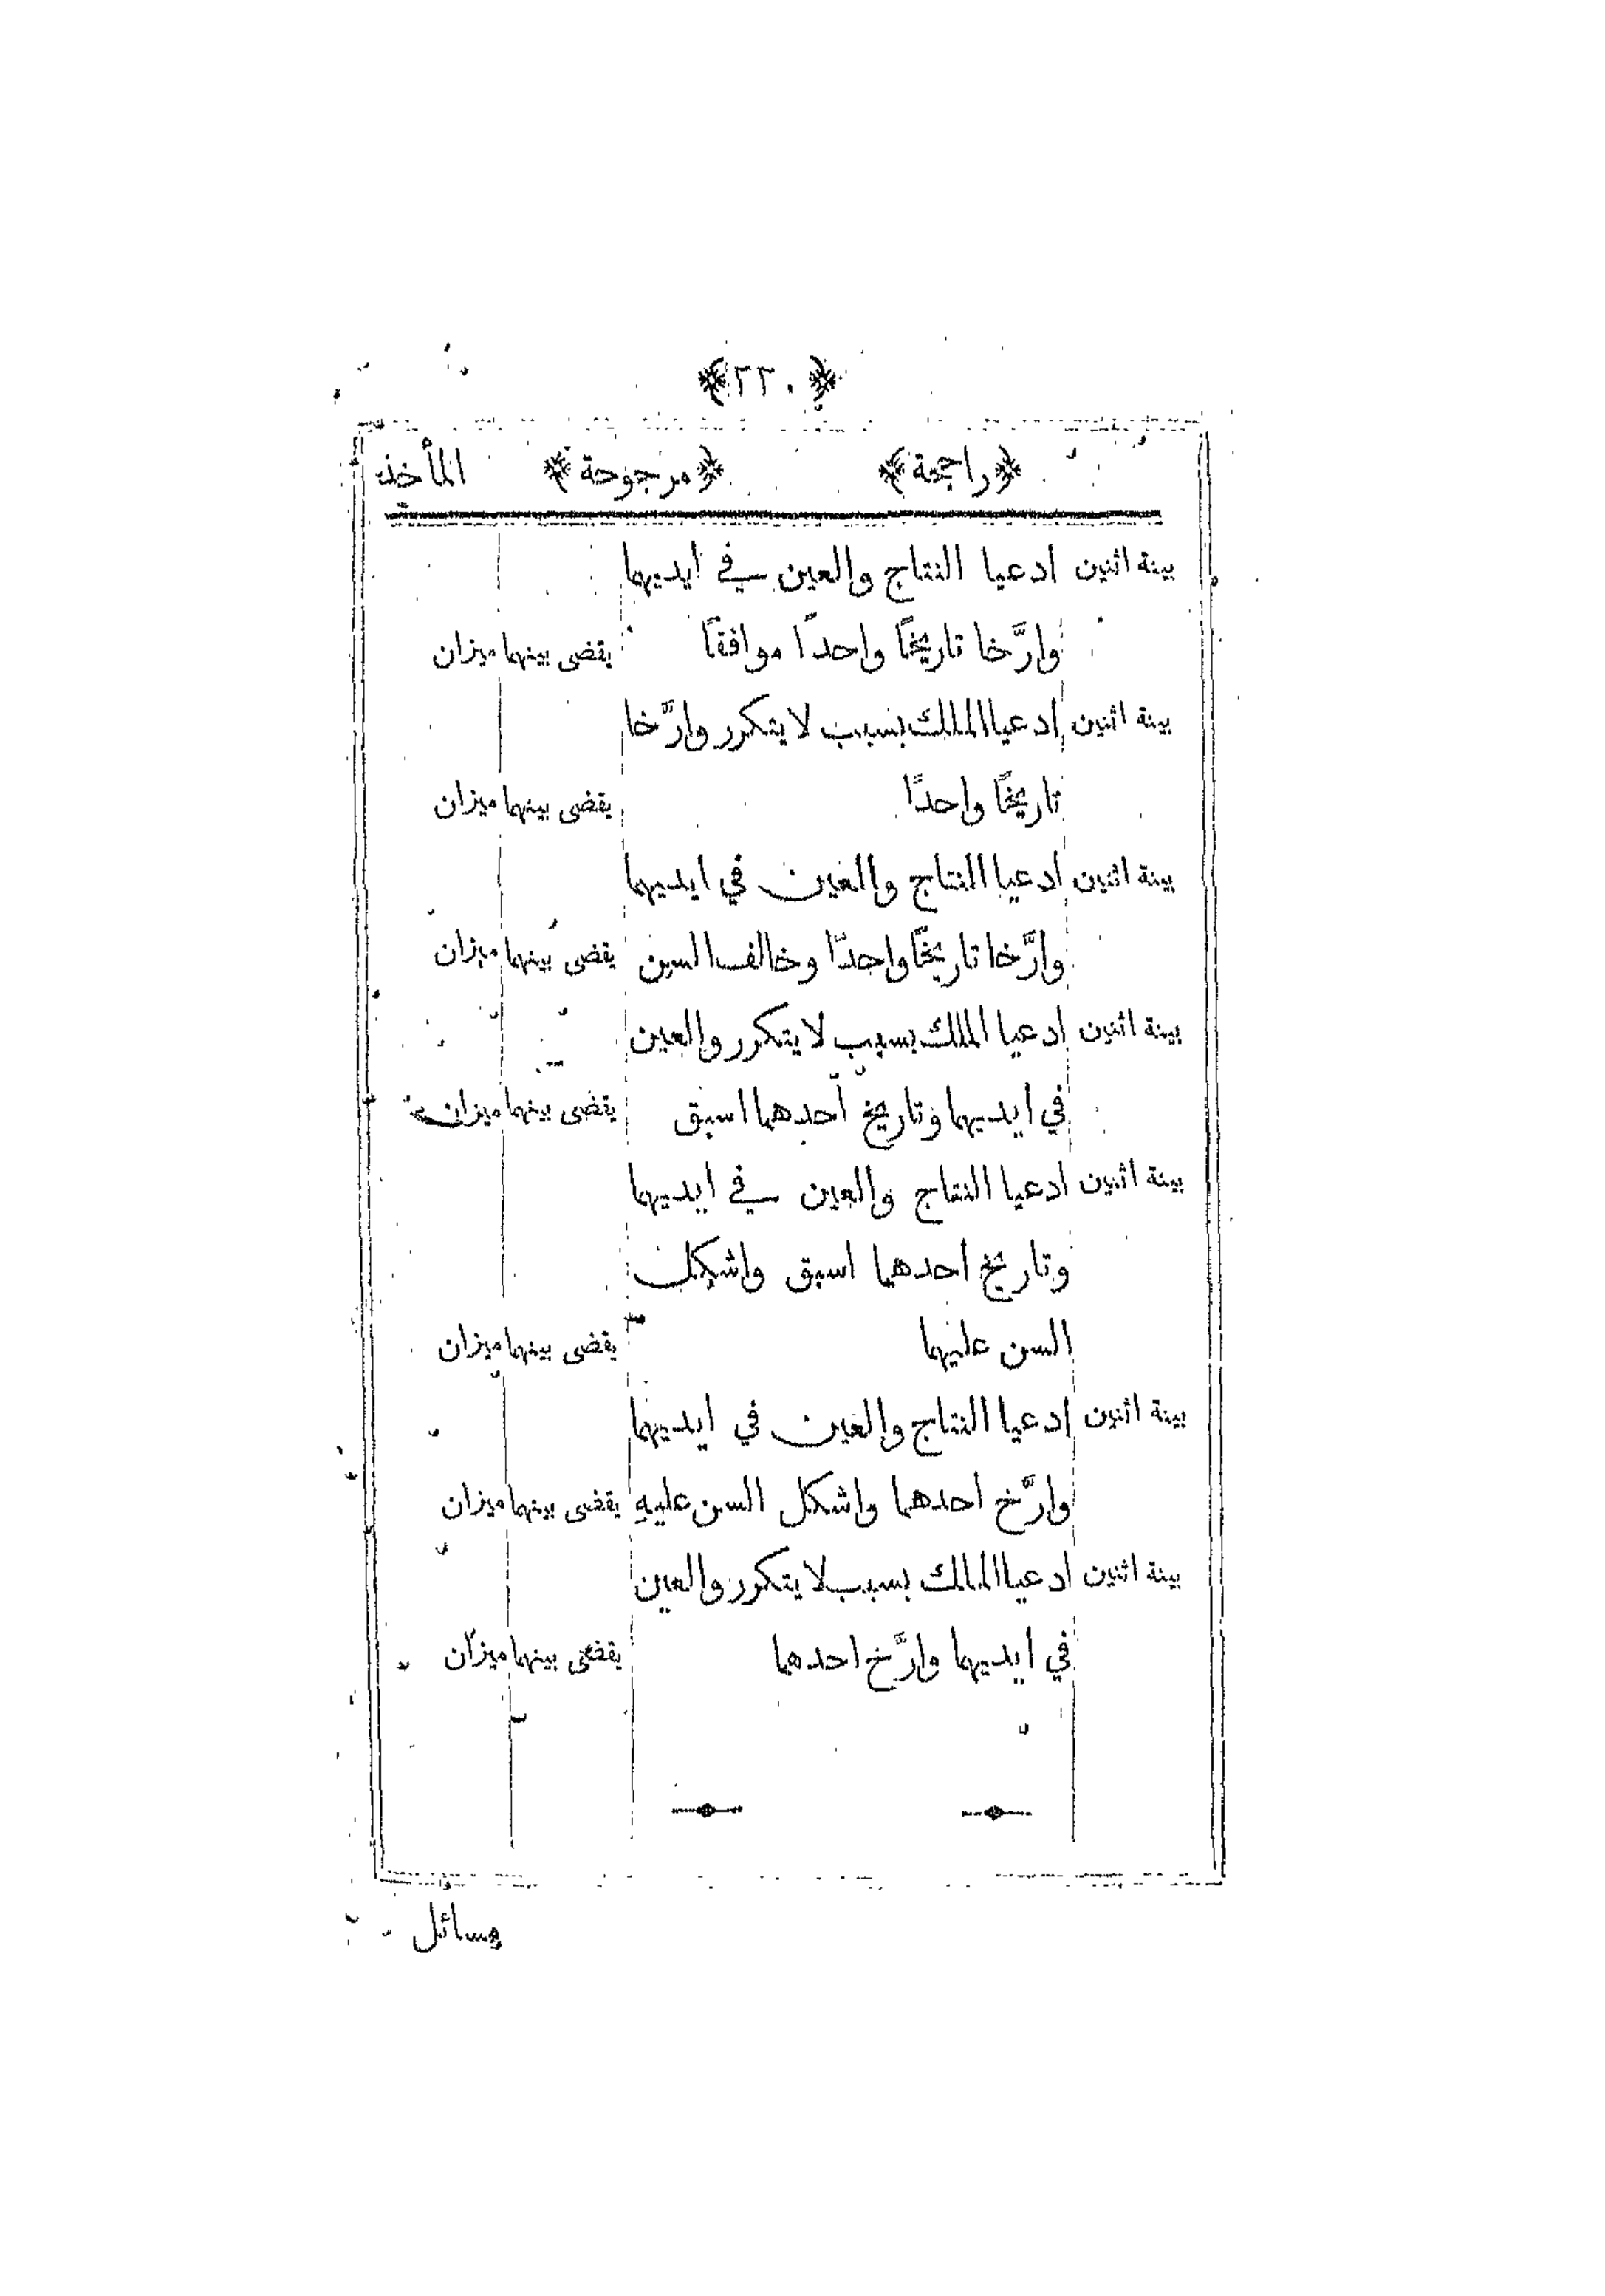 ﴿٢٢٠﴾
﴿راجحة﴾ ﴿مرجوحة﴾ المأخذ
بينة اثنين ادعيا النتاج والعين في ايديهما
وارَّخا تاريخًا واحدًا موافقًا يقضى بينهما ميزان
بينة اثنين ادعيا الملك بسبب لا يتكرر وارَّخا
تاريخًا واحدًا يقضى بينهما ميزان
بينة اثنين ادعيا النتاج والعين في ايديهما
وارَّخا تاريخًا واحدًا وخالف السن يقضى بينهما ميزان
بينة اثنين ادعيا الملك بسبب لا يتكرر والعين
في ايديهما وتاريخ احدهما اسبق يقضى بينهما ميزان
بينة اثنين ادعيا النتاج والعين في ايديهما
وتاريخ احدهما اسبق واشكل
السن عليهما يقضى بينهما ميزان
بينة اثنين ادعيا النتاج والعين في ايديهما
وارَّخ احدهما واشكل السن عليهِ يقضى بينهما ميزان
بينة اثنين ادعيا الملك بسبب لا يتكرر والعين
في ايديهما وارَّخ احدهما يقضى بينهما ميزان
مسائل